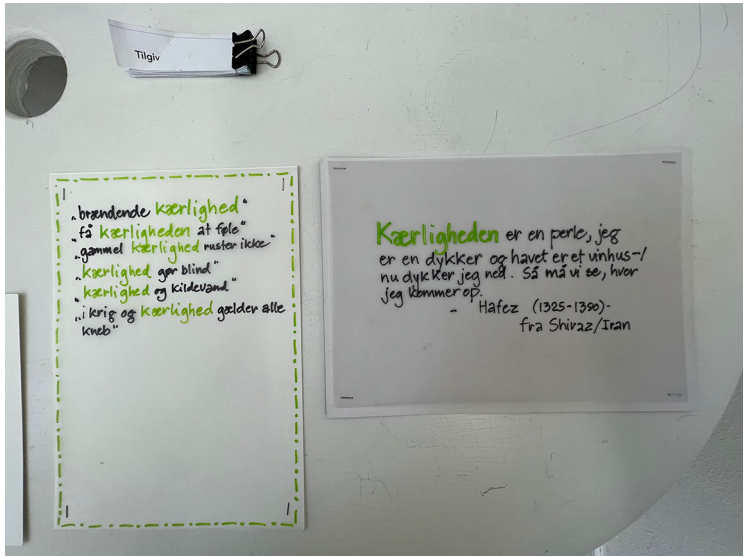 Tilgiv
„brændende kærlighed"
„få kærligheden at føle"
„gammel kærlighed ruster ikke"
„kærlighed gør blind"
„kærlighed og kildevand"
„i krig og kærlighed gælder alle
kneb"
Kærligheden er en perle, jeg
er en dykker og havet er et vinhus-/
nu dykker jeg ned. Så må vi se, hvor
jeg kommer op.
- Hafez (1325-1390)-
fra Shiraz/Iran